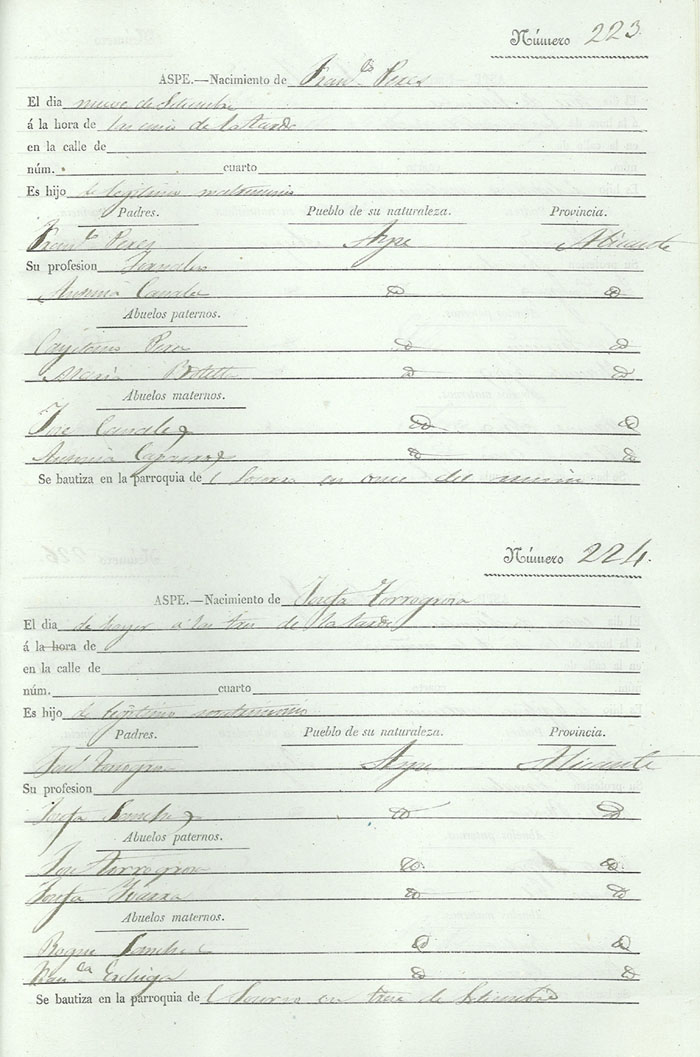 Número 223.
ASPE.—Nacimiento de Fran.co Peres
El dia nueve de Setiembre
á la hora de las cinco de la tarde
en la calle de
núm. cuarto
Es hijo de legitimo matrimonio
Padres. Pueblo de su naturaleza. Provincia.
Fran.co Peres Aspe Alicante
Su profesion Jornalero
Antonia Canales id id
Abuelos paternos.
Cayetano Peres id id
Maria Botella id id
Abuelos maternos.
José Canales id id
Antonia id id
Se bautiza en la parroquia de l Socorro en once del mismo
Número 224.
ASPE.—Nacimiento de Josefa Torregrosa
El dia de hoyer a las tres de la tarde
á la hora de
en la calle de
núm. cuarto
Es hijo de legitimo matrimonio
Padres. Pueblo de su naturaleza. Provincia.
José Torregrosa Aspe Alicante
Su profesion
Josefa Sanchez id id
Abuelos paternos.
José Torregrosa id id
Josefa id id
Abuelos maternos.
Roque Sanchez id id
Fran.ca id id
Se bautiza en la parroquia de l Socorro en trece de Setiembre